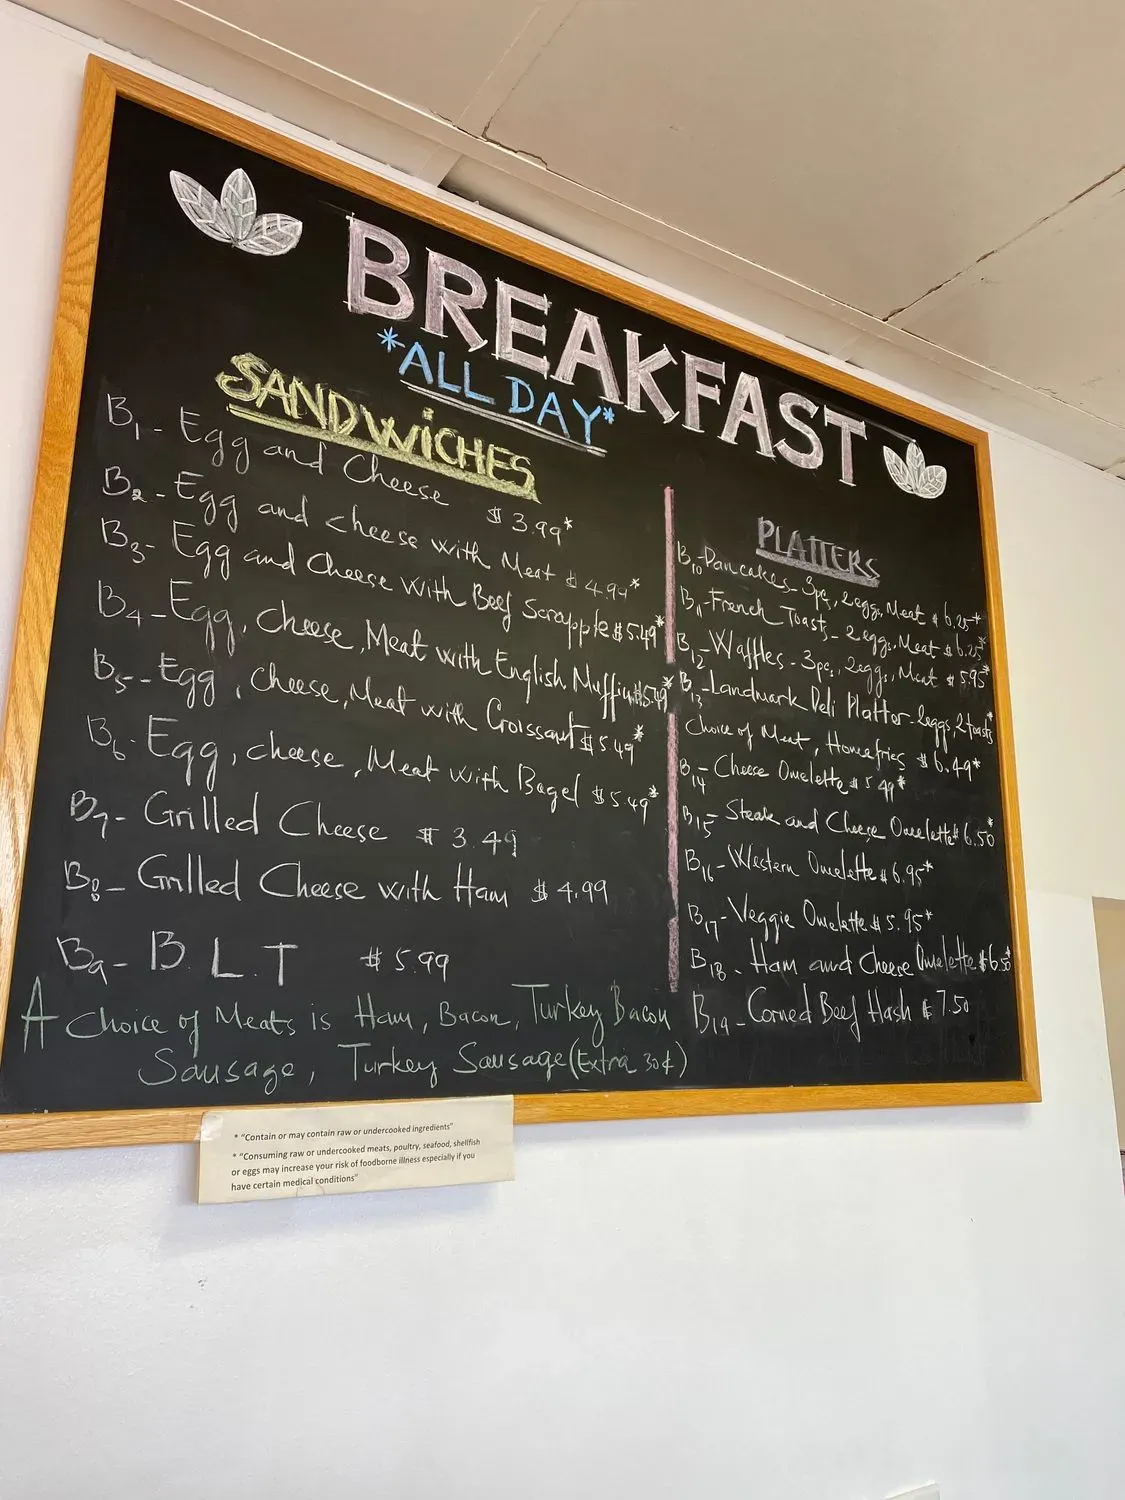 BREAKFAST
*ALL DAY*
SANDWICHES
B1- Egg and Cheese $3.99*
B2- Egg and cheese with Meat $4.99*
B3- Egg and Cheese with Beef Scrapple $5.49*
B4- Egg, Cheese, Meat with English Muffin $5.49*
B5- Egg, Cheese, Meat with Croissant $5.49*
B6- Egg, cheese, Meat with Bagel $5.49*
B7- Grilled Cheese $3.49
B8- Grilled Cheese with Ham $4.99
B9- B.L.T $5.99
A Choice of Meats is Ham, Bacon, Turkey Bacon
Sausage, Turkey Sausage (Extra 30¢)
PLATTERS
B10-Pancakes-3pc, 2eggs, Meat $6.25*
B11-French Toasts-2eggs, Meat $6.25*
B12-Waffles-3pc, 2eggs, Meat $5.95*
B13-Landmark Deli Platter-2eggs, 2toasts*
Choice of Meat, Homefries $6.49*
B14- Cheese Omelette $5.99*
B15- Steak and Cheese Omelette $6.50*
B16-Western Omelette $6.95*
B17-Veggie Omelette $5.95*
B18- Ham and Cheese Omelette $6.50*
B19-Corned Beef Hash $7.50
* "Contain or may contain raw or undercooked ingredients"
* "Consuming raw or undercooked meats, poultry, seafood, shellfish
or eggs may increase your risk of foodborne illness especially if you
have certain medical conditions"